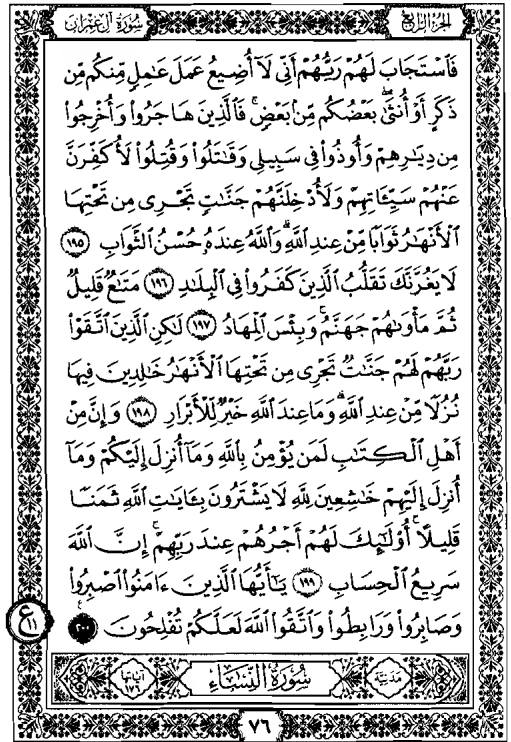 الجزء الرابع
سورة آل عمران
فَٱسْتَجَابَ لَهُمْ رَبُّهُمْ أَنِّى لَآ أُضِيعُ عَمَلَ عَٰمِلٍ مِّنكُم مِّن
ذَكَرٍ أَوْ أُنثَىٰ ۖ بَعْضُكُم مِّنۢ بَعْضٍ ۖ فَٱلَّذِينَ هَاجَرُوا۟ وَأُخْرِجُوا۟
مِن دِيَٰرِهِمْ وَأُوذُوا۟ فِى سَبِيلِى وَقَٰتَلُوا۟ وَقُتِلُوا۟ لَأُكَفِّرَنَّ
عَنْهُمْ سَيِّـَٔاتِهِمْ وَلَأُدْخِلَنَّهُمْ جَنَّٰتٍ تَجْرِى مِن تَحْتِهَا
ٱلْأَنْهَٰرُ ثَوَابًا مِّنْ عِندِ ٱللَّهِ ۗ وَٱللَّهُ عِندَهُۥ حُسْنُ ٱلثَّوَابِ ١٩٥
لَا يَغُرَّنَّكَ تَقَلُّبُ ٱلَّذِينَ كَفَرُوا۟ فِى ٱلْبِلَٰدِ ١٩٦ مَتَٰعٌ قَلِيلٌ
ثُمَّ مَأْوَىٰهُمْ جَهَنَّمُ ۚ وَبِئْسَ ٱلْمِهَادُ ١٩٧ لَٰكِنِ ٱلَّذِينَ ٱتَّقَوْا۟
رَبَّهُمْ لَهُمْ جَنَّٰتٌ تَجْرِى مِن تَحْتِهَا ٱلْأَنْهَٰرُ خَٰلِدِينَ فِيهَا
نُزُلًا مِّنْ عِندِ ٱللَّهِ ۗ وَمَا عِندَ ٱللَّهِ خَيْرٌ لِّلْأَبْرَارِ ١٩٨ وَإِنَّ مِنْ
أَهْلِ ٱلْكِتَٰبِ لَمَن يُؤْمِنُ بِٱللَّهِ وَمَآ أُنزِلَ إِلَيْكُمْ وَمَآ
أُنزِلَ إِلَيْهِمْ خَٰشِعِينَ لِلَّهِ لَا يَشْتَرُونَ بِـَٔايَٰتِ ٱللَّهِ ثَمَنًا
قَلِيلًا ۗ أُو۟لَٰٓئِكَ لَهُمْ أَجْرُهُمْ عِندَ رَبِّهِمْ ۗ إِنَّ ٱللَّهَ
سَرِيعُ ٱلْحِسَابِ ١٩٩ يَٰٓأَيُّهَا ٱلَّذِينَ ءَامَنُوا۟ ٱصْبِرُوا۟
وَصَابِرُوا۟ وَرَابِطُوا۟ وَٱتَّقُوا۟ ٱللَّهَ لَعَلَّكُمْ تُفْلِحُونَ ٢٠٠
ع ١١
مدنية
سورة النساء
آياتها ١٧٦
٧٦